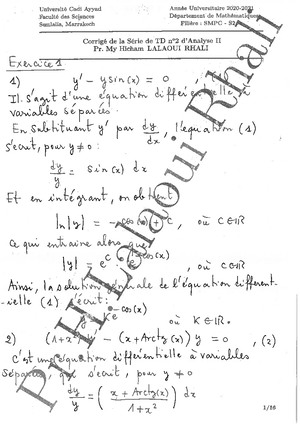 Université Cadi Ayyad
Faculté des Sciences
Semlalia, Marrakech
Année Universitaire 2020-2021
Département de Mathématiques
Filière : SMPC - S2
Corrigé de la Série de TD n°2 d'Analyse II
Pr. My Hicham LALAOUI RHALI
Exercice 1
1) y' - y sin(x) = 0 , (1)
Il s'agit d'une équation différentielle à
variables séparées.
En substituant y' par dy/dx, l'équation (1)
s'écrit, pour y ≠ 0 :
dy/y = sin(x) dx
Et en intégrant, on obtient
ln|y| = -cos(x) + C, où C ∈ ℝ
Ce qui entraîne alors que
|y| = e^C e^{-cos(x)}, où C ∈ ℝ
Ainsi, la solution générale de l'équation différent-
-ielle (1) s'écrit :
y = K e^{-cos(x)} où K ∈ ℝ.
2) (1+x²) y' - (x + Arctg(x)) y = 0 , (2)
C'est une équation différentielle à variables
séparées, qui s'écrit, pour y ≠ 0
dy/y = (x + Arctg(x) / 1+x²) dx
1/26
Pr. H. Lalaoui Rhali